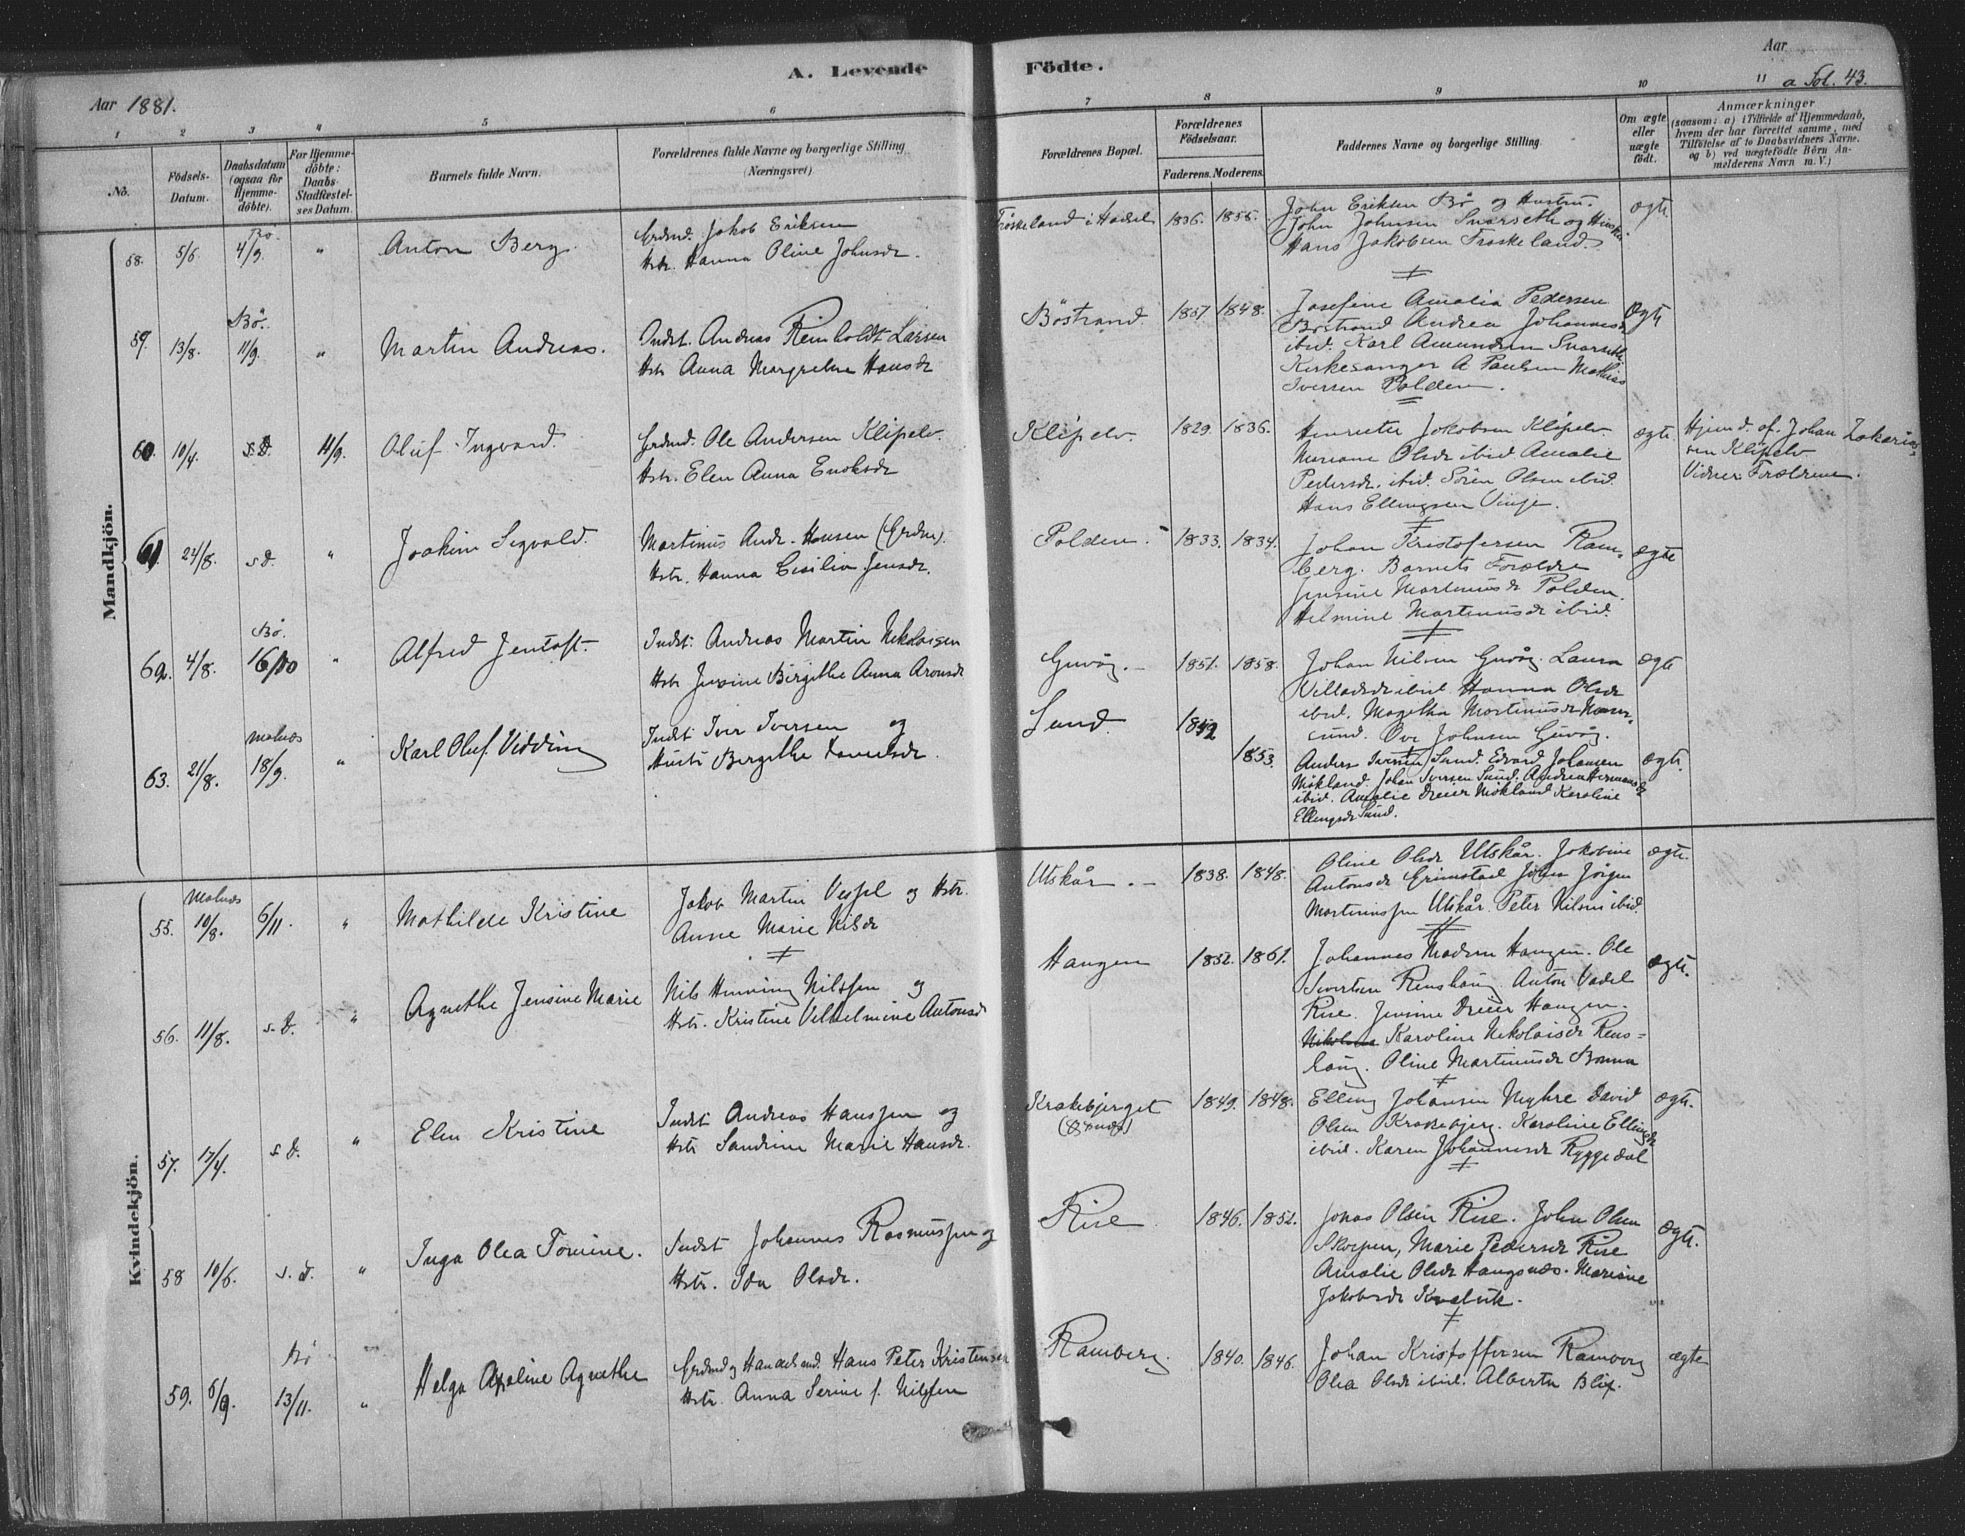 A. Levende
Födte.
Aar 1881.
Aar
a Fol. 43.
1 2 3 4 5 6
7 8 9 10 11
No.
Födsels-
Datum.
Daabsdatum
(ogsaa for
Hjemme-
döbte).
For Hjemme-
döbte:
Daabs-
Stadfæstel-
ses Datum.
Barnets fulde Navn.
Forældrenes fulde Navne og borgerlige Stilling
(Næringsvei)
Forældrenes Bopæl.
Forældrenes
Födselsaar.
Faderens. Moderens.
Faddernes Navne og borgerlige Stilling.
Om ægte
eller
uægte
födt.
Anmærkninger
(saasom: a) i Tilfælde af Hjemmedaab,
hvem der har forrettet samme, med
Tilföielse af to Daabsvidners Navne.
og b) ved uægtefödte Börn An-
melderens Navn m. V.)
Mandkjön.
58. 5/6 Bø 4/9 " Anton Berg.
Grdmd. Jakob Eriksen
Hstr. Hanna Oline Johnsdr.
Froskeland i Hadsel 1836. 1855.
John Eriksen Bø og Hustru.
John Johnsen Snarseth og Hustru
Hans Jakobsen Froskeland.
ægte
59. 13/8. Bø. 11/9. " Martin Andreas.
Indst. Andreas Reinholdt Larsen
Hstr Anna Margrethe Hansdr
Bøstrand 1857. 1848.
Josefine Amalia Pedersen
Bøstrand Andrea Johannesdr
ibid. Karl Amundsen Snarseth
Kirkesanger A Paulsen Mathias
Iversen Polden.
Ægte
60. 10/4. s.D. 11/9. Oluf Ingvard.
Grdmd. Ole Andersen Klipelv.
Hstr. Elen Anna Enoksdr
Klipelv. 1829. 1836.
Henriette Jakobsen Klipelv.
Mariane Olsdr ibid Amalie
Pedersdr. ibid. Sören Olsen ibid.
Hans Ellingsen Vinje.
ægte.
Hjemd. af. Johan Zakarias-
sen Klipelv
Vidner Forældrene.
61. 24/8. s D. " Joakim Sigvald.
Martinus Andr. Hansen (Grdm).
Hstr. Hanna Cesilia Jensdr.
Polden. 1833. 1834.
Johan Kristofersen Ram-
berg. Barnets Forældre
Jensine Martinusdr Polden.
Helmine Martinusdr ibid.
ægte
62. 4/8. Bø. 16/10 " Alfred Jentoft.
Indst. Andreas Martin Nikolaisen
Hstr Jensine Birgithe Anna Aronsdr
Guvåg. 1851. 1858.
Johan Nilsen Guvåg. Laura
ibid Hanna Olsdr
ibid. Magetha Martinusdr
sund. Ove Johnsen Guvåg.
ægte
63. 21/8. Malnæs 18/9. " Karl Oluf Vidding
Indst Iver Iversen og
Hustr Bergithe
Sund. 1852 1853.
Anders Iversen Sund. Edvard Johansen
Møkland. Johan Iversen Sund. Andrea Hermansdr
ibid. Amalie Dreier Møkland Karoline
Ellingsdr Sund.
ægte.
Kvindekjön.
55. Malnæs 10/8. 6/11. " Mathilde Kristine
Jakob Martin Vessel og Hstr.
Anne Marie Nilsdr
Utskår. 1838. 1848.
Oline Olsdr Utskår. Jakobine
Antonsdr Grimstad Johan Jörgen
Martinussen Utskår. Peter Nilsen ibid.
ægte.
56. 11/8. s. D. " Agnethe Jensine Marie
Nils Henning Nilssen og
Hstr. Kristine Vilhelmine Antonsdr
Haugen 1852. 1861.
Johannes Madsen Haugen. Ole
Sivertsen Renshaug. Anton Vadel
Rise. Jensine Dreier Haugen.
Karoline Nikolaisdr Rens-
haug. Oline Martinusdr
ægte.
57. 17/4. s D. " Elen Kristine
Indst Andreas Hanssen og
Hstr Sandrine Marie Hansdr.
Krakebjerget
1849. 1848.
Elling Johansen Myhre David
Olsen Krakebjerg. Karoline Ellingsdr
ibid. Karen Johannesdr Ryggedal
ægte.
58 10/6. s. D. " Inga Olea Tomine.
Indst Johannes Rasmussen og
Hstr. Ida Olsdr.
Rise 1846. 1852.
Jonas Olsen Rise. John Olsen
Marie Pedersdr Rise
Amalie Olsdr Haugsnæs. Mariane
Jakobsdr
ægte.
59. 6/9. Bø 13/11. " Helga Apoline Agnethe
Grdmd og Handelsmd. Hans Peter Kristensen
Hstr. Anna Serine f. Nilssen
Ramberg. 1840. 1846.
Johan Kristoffersen Ramberg
Olea Olsdr ibid. Alberta Blix.
ægte